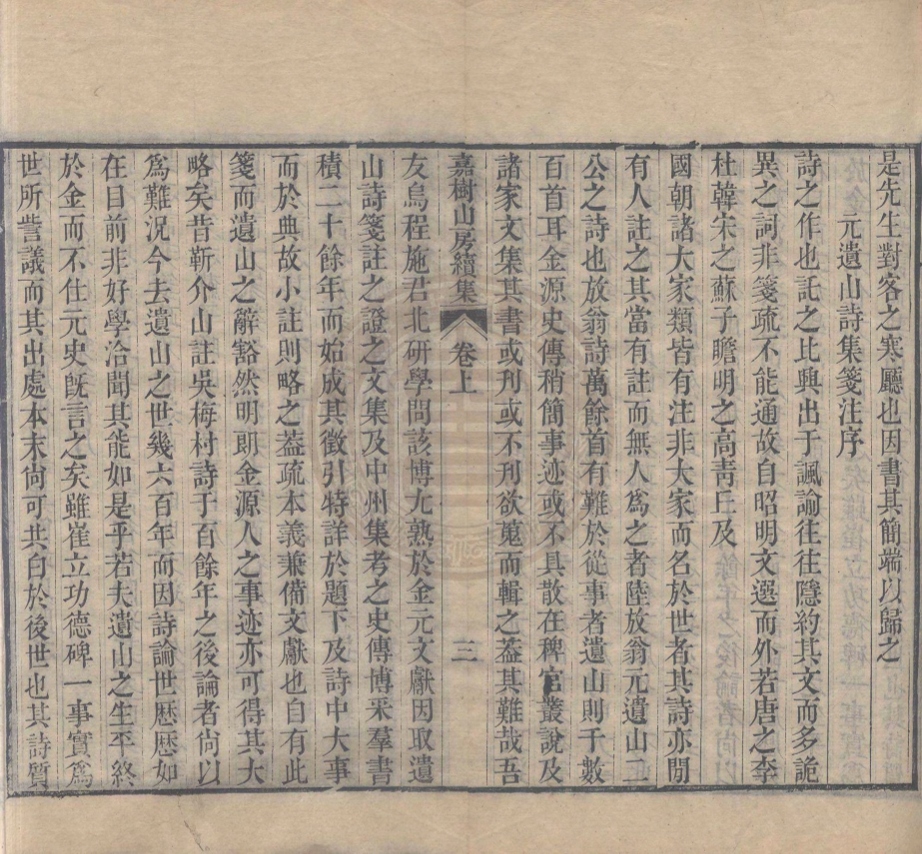 是先生對客之寒廳也因書其簡端以歸之
元遺山詩集箋注序
詩之作也託之比興出于諷諭往往隱約其文而多詭
異之詞非箋疏不能通故自昭明文選而外若唐之李
杜韓宋之蘇子瞻明之高靑丘及
國朝諸大家類皆有注非大家而名於世者其詩亦閒
有人註之其當有註而無人爲之者陸放翁元遺山二
公之詩也放翁詩萬餘首有難於從事者遺山則千數
百首耳金源史傳稍簡事迹或不具散在稗官叢說及
諸家文集其書或刊或不刊欲蒐而輯之葢其難哉吾
嘉樹山房續集 卷上 三
友烏程施君北研學問該博尤熟於金元文獻因取遺
山詩箋註之證之文集及中州集考之史傳博采羣書
積二十餘年而始成其徵引特詳於題下及詩中大事
而於典故小註則略之葢疏本義兼備文獻也自有此
箋而遺山之辭豁然明卽金源人之事迹亦可得其大
略矣昔靳介山註吳梅村詩于百餘年之後論者尙以
爲難況今去遺山之世幾六百年而因詩論世歷歷如
在目前非好學洽聞其能如是乎若夫遺山之生平終
於金而不仕元史旣言之矣雖崔立功德碑一事實爲
世所訾議而其出處本末尙可共白於後世也其詩質